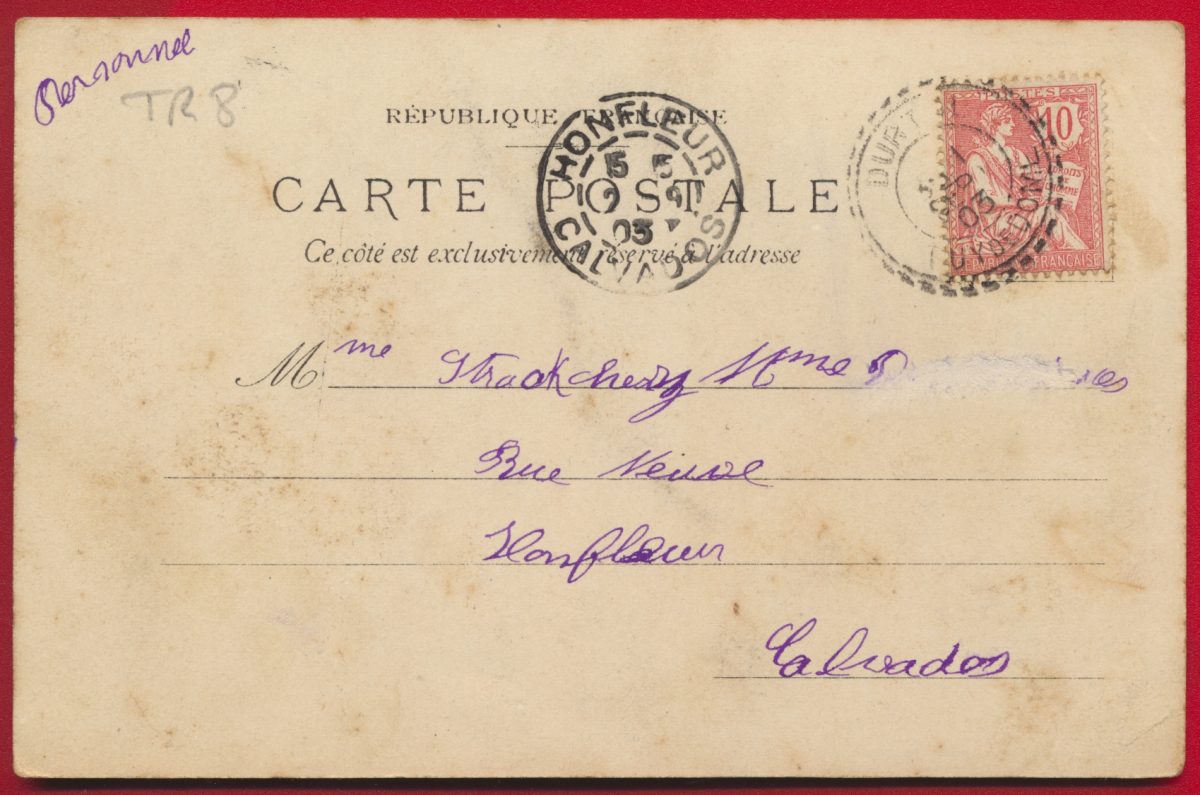 Personnel
TR 8
RÉPUBLIQUE FRANÇAISE
CARTE POSTALE
Ce côté est exclusivement réservé à l'adresse
HONFLEUR
5 5
9
03
CALVADOS
DURT
03
PUY DE DÔME
POSTES
10
DROITS DE L'HOMME
REPUBLIQUE FRANÇAISE
Mme Strackchery Mme
Rue Neuve
Honfleur
Calvados